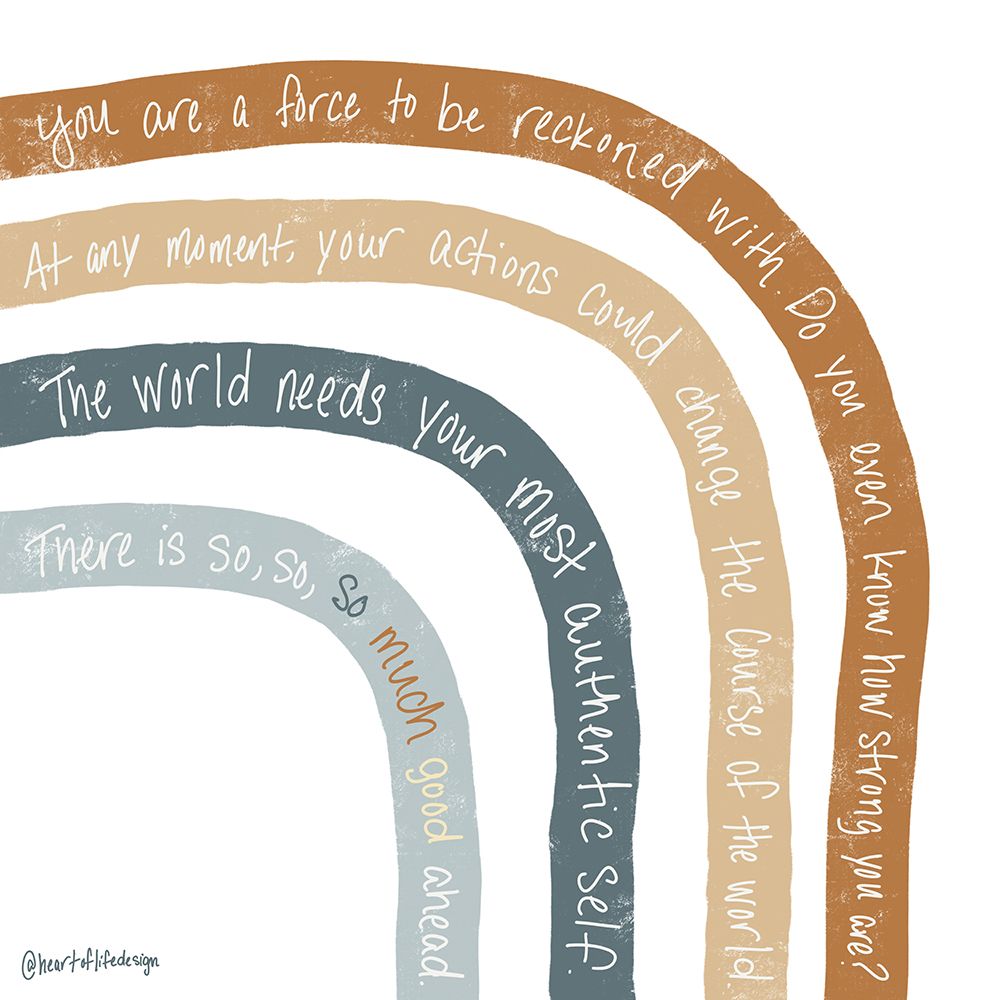 you are a force to be reckoned with. Do you even know how strong you are?
At any moment, your actions could change the course of the world.
The world needs your most authentic self.
There is so, so, so much good ahead.
@heartoflifedesign